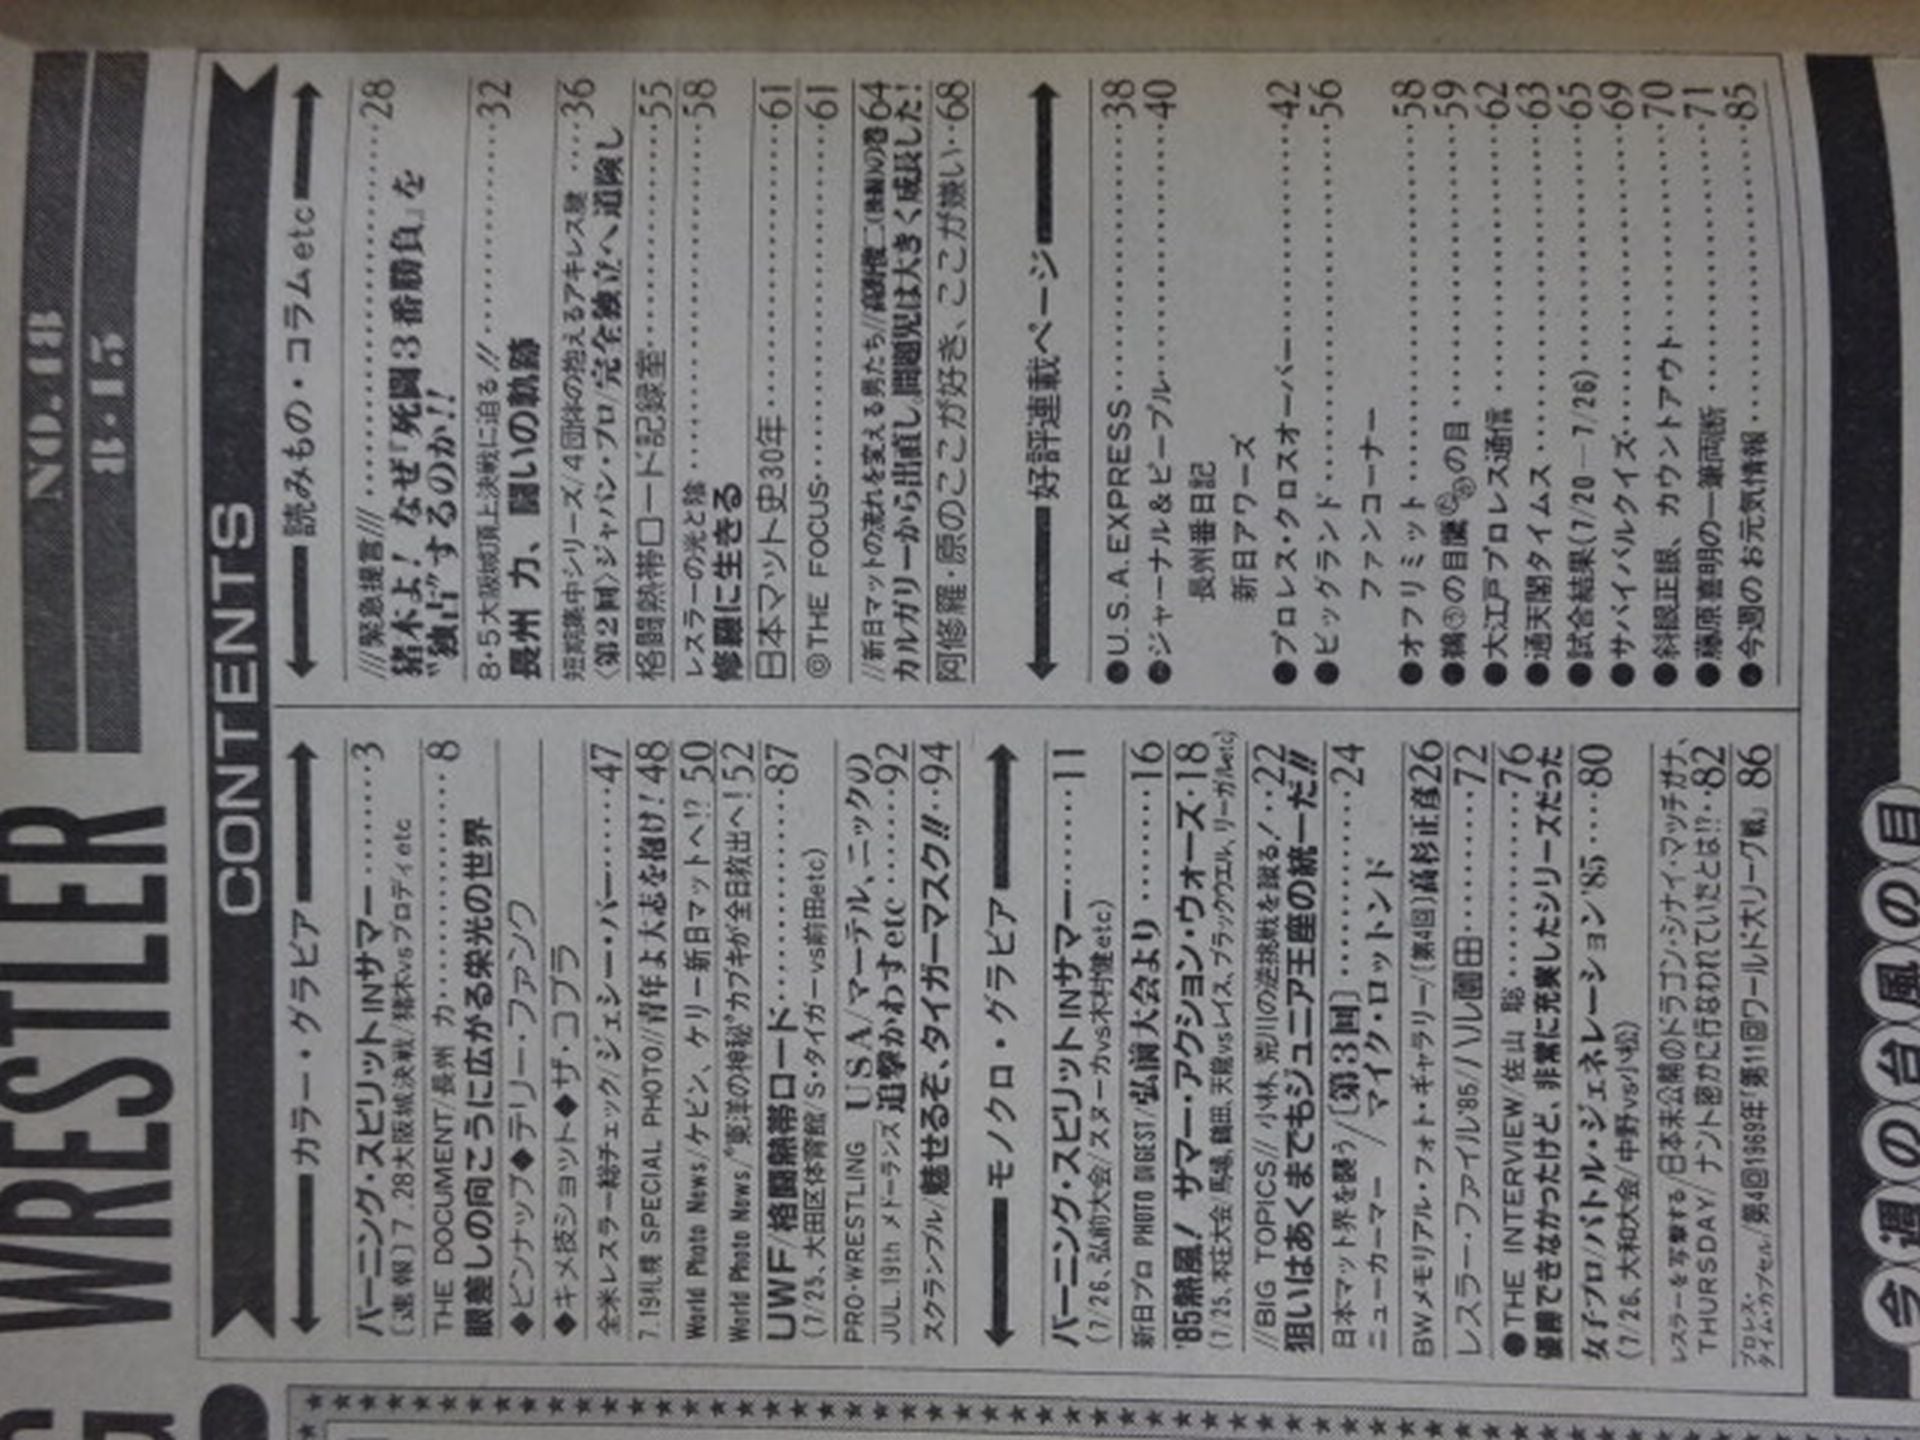 G WRESTLER
NO.48
8・15
CONTENTS
カラー・グラビア
バーニング・スピリットINサマー……3
〔速報〕7.28大阪城決戦/猪木vsブロディetc
THE DOCUMENT/長州 力……8
眼差しの向こうに広がる栄光の世界
◆ピンナップ◆テリー・ファンク
◆キメ技ショット◆ザ・コブラ
全米レスラー総チェック/ジェシー・バー……47
7.19札幌 SPECIAL PHOTO//青年よ大志を抱け!48
World Photo News/ケビン、ケリー新日マットへ!? 50
World Photo News/“東洋の神秘”カブキが全日救出へ!52
UWF/格闘熱帯ロード……87
(7/25、大田区体育館 S・タイガーvs前田etc)
PRO-WRESTLING USA/マーテル、ニックの
JUL.19th メドーランズ 追撃かわすetc……92
スクランブル/魅せるぞ、タイガーマスク!!…94
モノクロ・グラビア
バーニング・スピリットINサマー……11
(7/26、弘前大会/スヌーカvs木村健etc)
新日プロ PHOTO DIGEST/弘前大会より……16
'85熱風! サマー・アクション・ウォーズ・18
(7/25、本庄大会/馬場、鶴田、天龍vsレイス、ブラックウエル、リーガルetc)
//BIG TOPICS// 小林、荒川の逆挑戦を蹴る!…22
狙いはあくまでもジュニア王座の統一だ!!
日本マット界を襲う/〔第3回〕……24
ニューカーマー/マイク・ロットンド
BWメモリアル・フォト・ギャラリー/〔第4回〕高杉正彦26
レスラー・ファイル'85/ハル薗田……72
●THE INTERVIEW/佐山 聡……76
優勝できなかったけど、非常に充実したシリーズだった
女子プロ/バトル・ジェネレーション'85……80
(7/26、大和大会/中野vs小松)
レスラーを写撃する/日本未公開のドラゴン・シナイ・マッチがナ、
THURSDAY/ナント密かに行なわれていたとは!?…82
プロレス・タイム・カプセル/第4回1969年「第11回ワールド大リーグ戦」86
読みもの・コラムetc
///緊急提言///……28
猪木よ! なぜ『死闘3番勝負』を
“独占”するのか!!
8・5大阪城頂上決戦に迫る!!……32
長州 力、闘いの軌跡
短期集中シリーズ/4団体の抱えるアキレス腱……36
〈第2回〉ジャパン・プロ/完全独立へ道険し
格闘熱帯ロード記録室……55
レスラーの光と陰……58
修羅に生きる
日本マット史30年……61
◎THE FOCUS……61
//新日マットの流れを変える男たち//高野俊二の巻64
カルガリーから出直し、問題児は大きく成長した!
阿修羅・原のここが好き、ここが嫌い…68
好評連載ページ
●U.S.A.EXPRESS……38
●ジャーナル&ピープル……40
長州番日記
新日アワーズ
●プロレス・クロスオーバー……42
●ビッグランド……56
ファンコーナー
●オフリミット……58
●鵜の目鷹の目……59
●大江戸プロレス通信……62
●通天閣タイムス……63
●試合結果(7/20―7/26)……65
●サバイバルクイズ……69
●斜眼正眼、カウントアウト……70
●藤原喜明の一筆両断……71
●今週のお元気情報……85
今週の台風の目